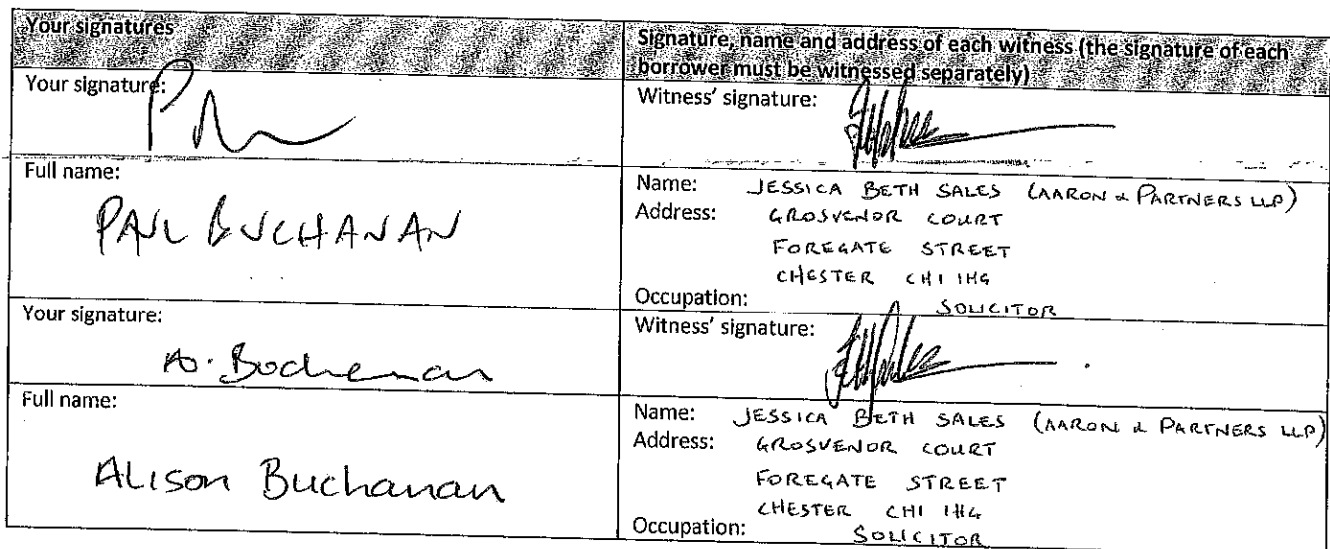 Your signatures
Signature, name and address of each witness (the signature of each
borrower must be witnessed separately)
Your signature:
Witness' signature:
Full name:
PAUL BUCHANAN
Name: JESSICA BETH SALES (AARON & PARTNERS LLP)
Address: GROSVENOR COURT
FOREGATE STREET
CHESTER CH1 1HG
Occupation: SOLICITOR
Your signature:
A. Buchanan
Witness' signature:
Full name:
Alison Buchanan
Name: JESSICA BETH SALES (AARON & PARTNERS LLP)
Address: GROSVENOR COURT
FOREGATE STREET
CHESTER CH1 1HG
Occupation: SOLICITOR